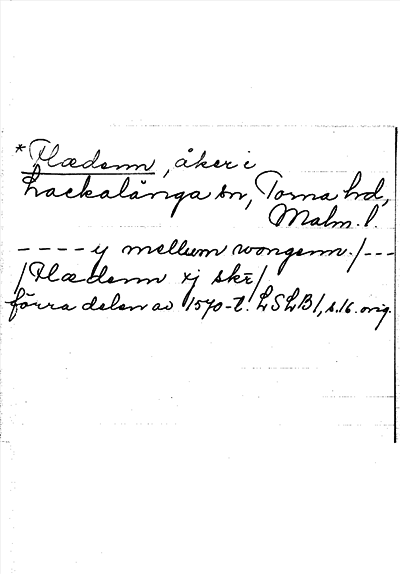 *Flædenn, åker i
Lackalänga sn, Torna hd,
Malm. l.
---- y mellum wongenn./---
/Flædenn xj skr/
förra delen av 1570-t. LSLB1, s.16. orig.